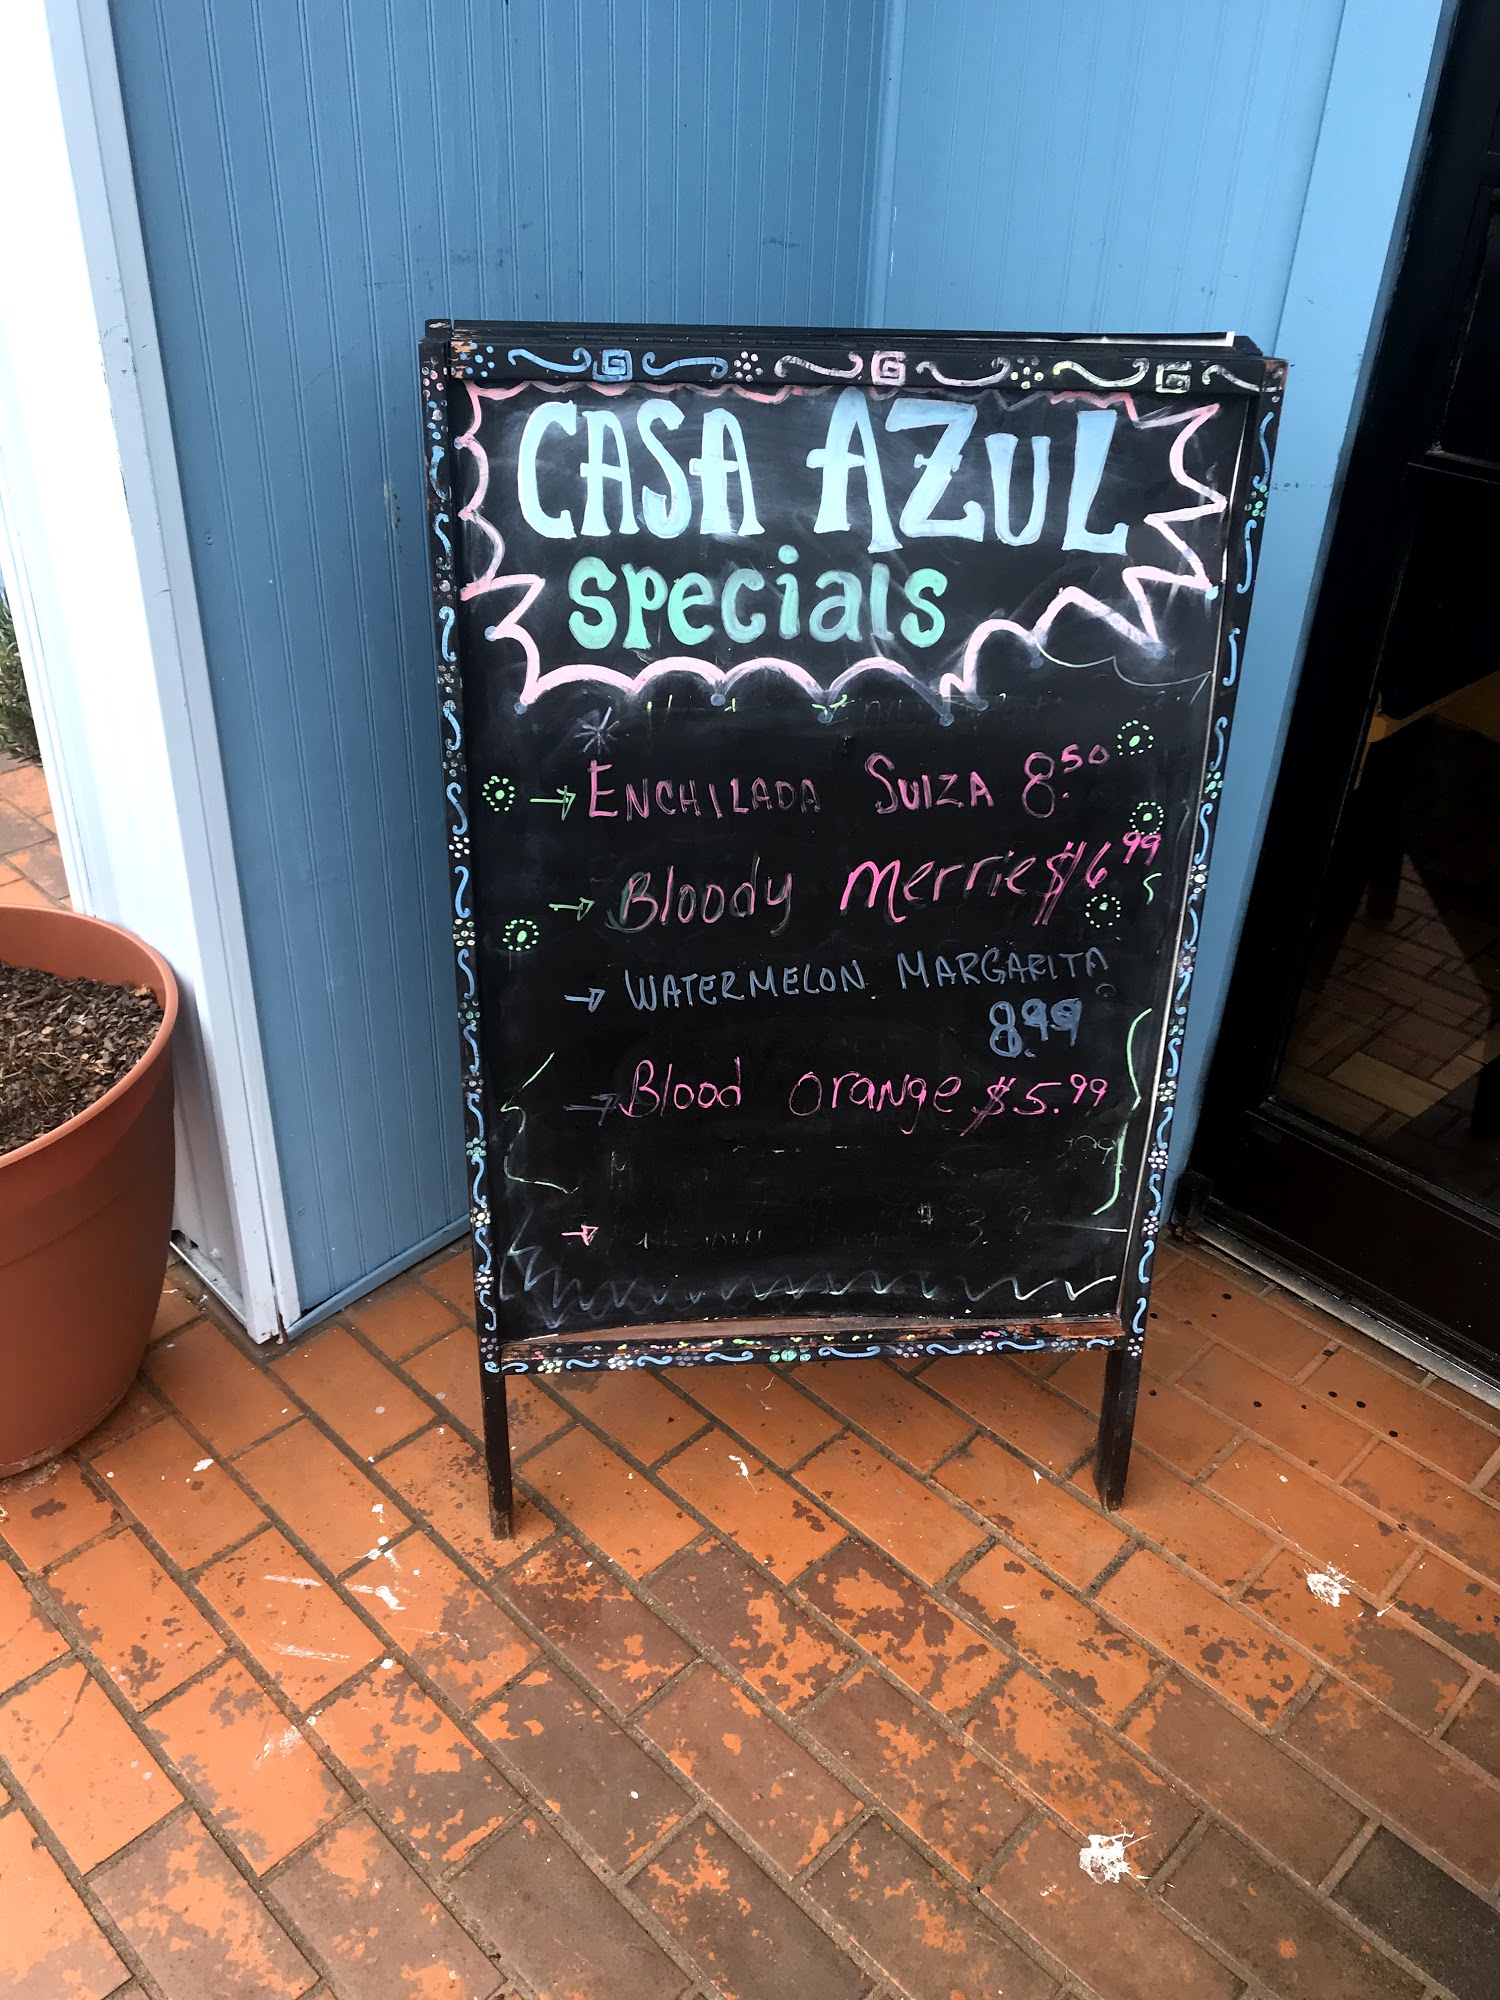 CASA AZUL
specials
→ ENCHILADA SUIZA 8.50
→ Bloody Merrie $6.99
→ WATERMELON MARGARITA
8.99
→ Blood orange $5.99